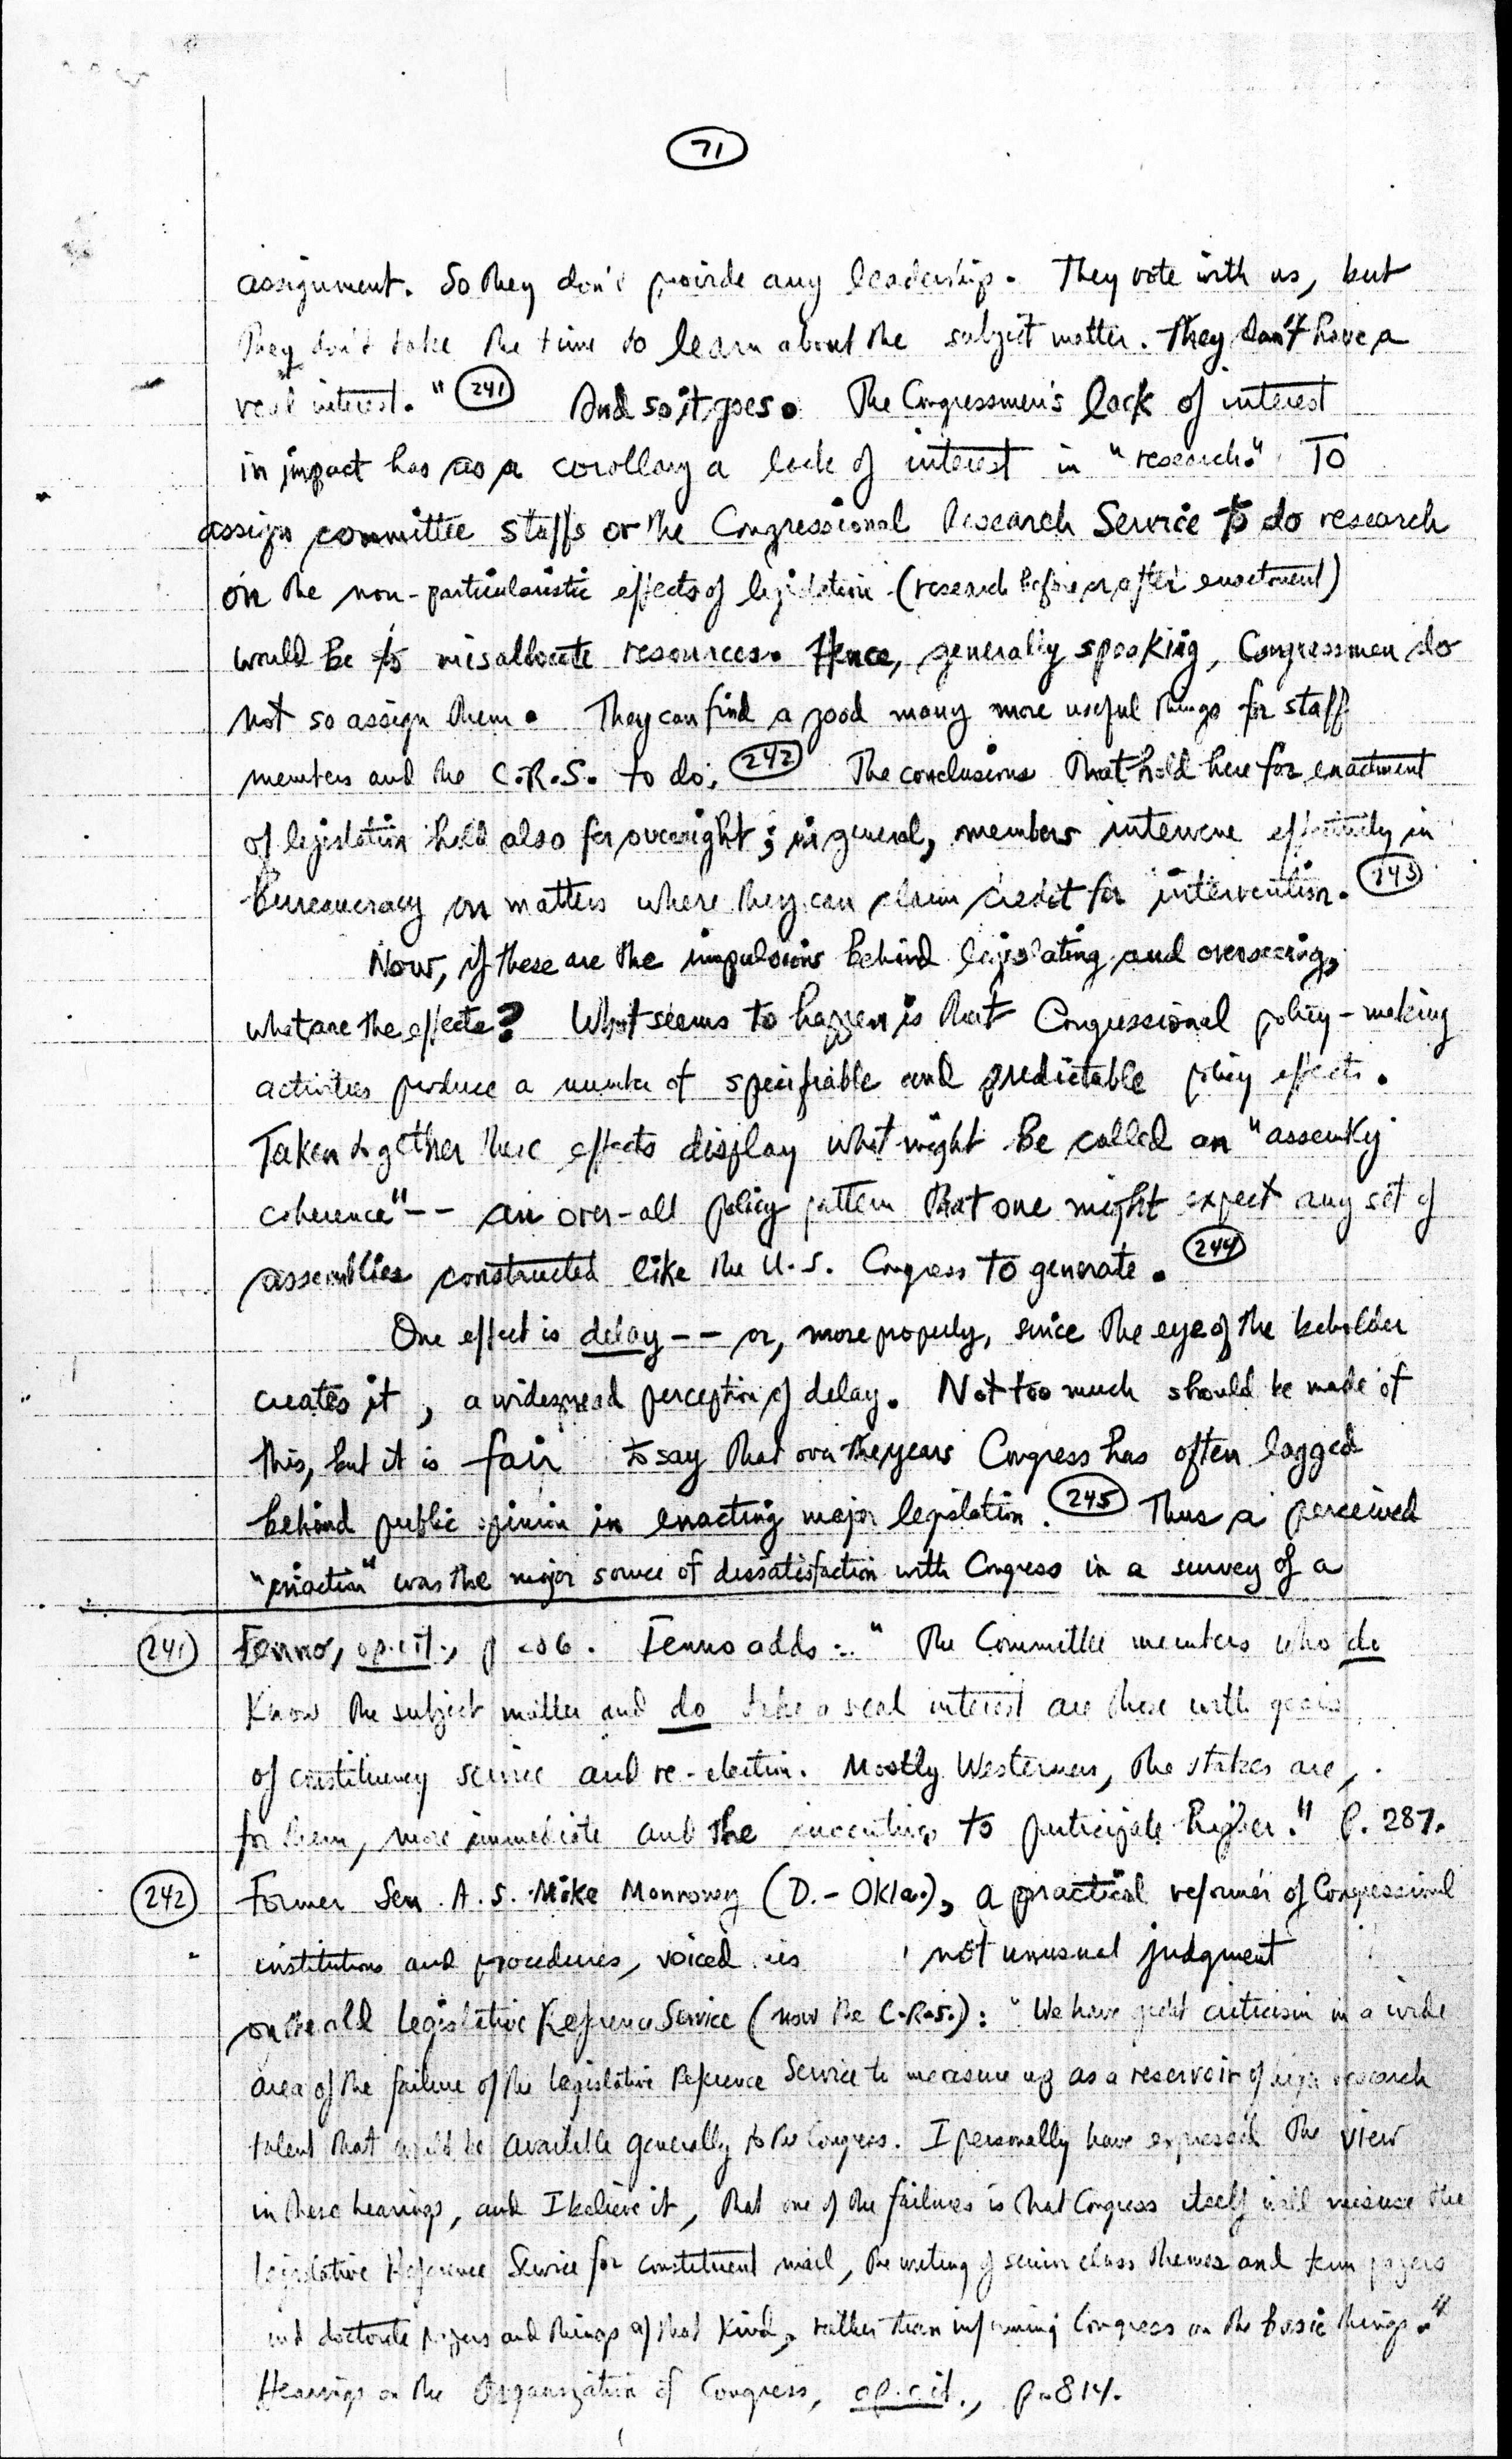 71
assignment. So they don't provide any leadership. They vote with us, but
they don't take the time to learn about the subject matter. They don't have a
real interest." 241 And so it goes. The Congressmen's lack of interest
in impact has as a corollary a lack of interest in "research." To
assign committee staffs or the Congressional Research Service to do research
on the non-particularistic effects of legislation (research before or after enactment)
would be to misallocate resources. Hence, generally speaking, Congressmen do
not so assign them. They can find a good many more useful things for staff
members and the C.R.S. to do. 242 The conclusions that hold here for enactment
of legislation hold also for oversight; in general, members intervene effectively in
bureaucracy on matters where they can claim credit for intervention. 243
Now, if these are the impulsions behind legislating and overseeing,
what are the effects? What seems to happen is that Congressional policy-making
activities produce a number of specifiable and predictable policy effects.
Taken together these effects display what might be called an "assembly
coherence" -- an over-all policy pattern that one might expect any set of
assemblies constructed like the U.S. Congress to generate. 244
One effect is delay -- or, more properly, since the eye of the beholder
creates it, a widespread perception of delay. Not too much should be made of
this, but it is fair to say that over the years Congress has often lagged
behind public opinion in enacting major legislation. 245 Thus a perceived
"inaction" was the major source of dissatisfaction with Congress in a survey of a
241 Fenno, op. cit., p. 286. Fenno adds: "The Committee members who do
know the subject matter and do take a real interest are those with goals
of constituency service and re-election. Mostly Westerners, the stakes are,
for them, more immediate and the incentives to participate higher." P. 287.
242 Former Sen. A. S. Mike Monroney (D.-Okla.), a practical reformer of Congressional
institutions and procedures, voiced his not unusual judgment
on the old Legislative Reference Service (now the C.R.S.): "We have great criticism in a wide
area of the failure of the Legislative Reference Service to measure up as a reservoir of high research
talent that would be available generally to the Congress. I personally have expressed the view
in these hearings, and I believe it, that one of the failures is that Congress itself will misuse the
Legislative Reference Service for constituent mail, the writing of senior class themes and term papers
and doctorate papers and things of that kind, rather than informing Congress on the basic things."
Hearings on the Organization of Congress, op. cit., p. 814.